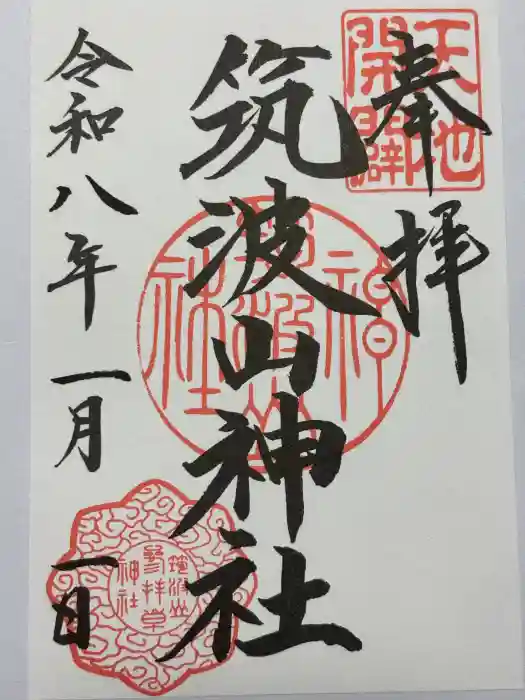 奉拝
天地開闢
筑波山神社
筑波山神社
令和八年一月一日
筑波山神社参拝章